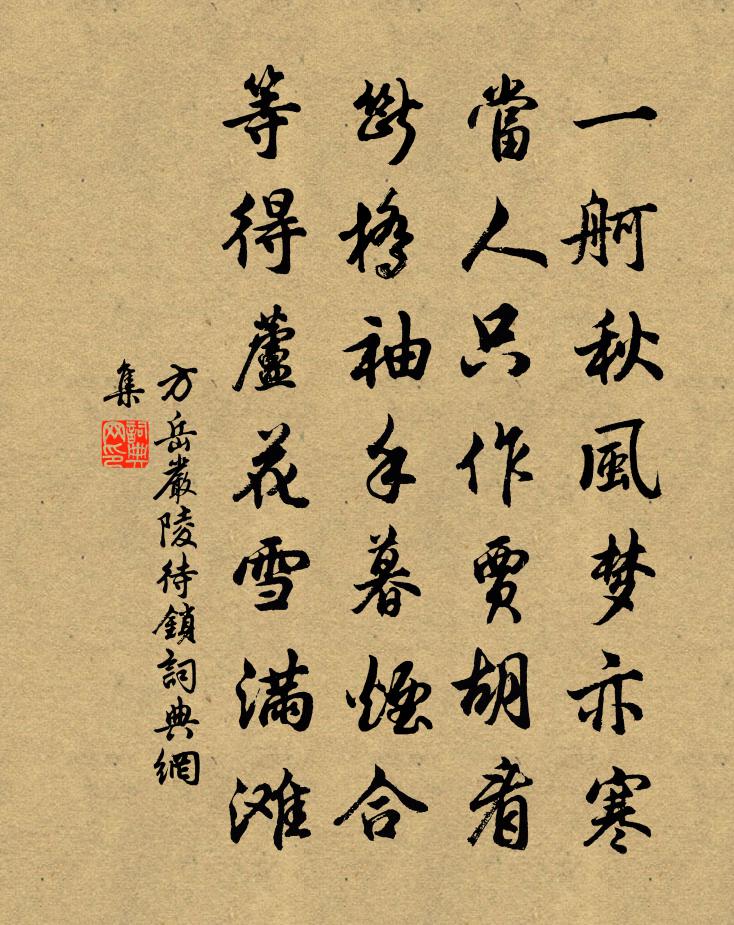 一舸秋風梦亦寒
當人只作賈胡看
斷橋袖手暮煙合
等得蘆花雪满滩
方岳嚴陵待鎖詞典網
集
詞典
网印